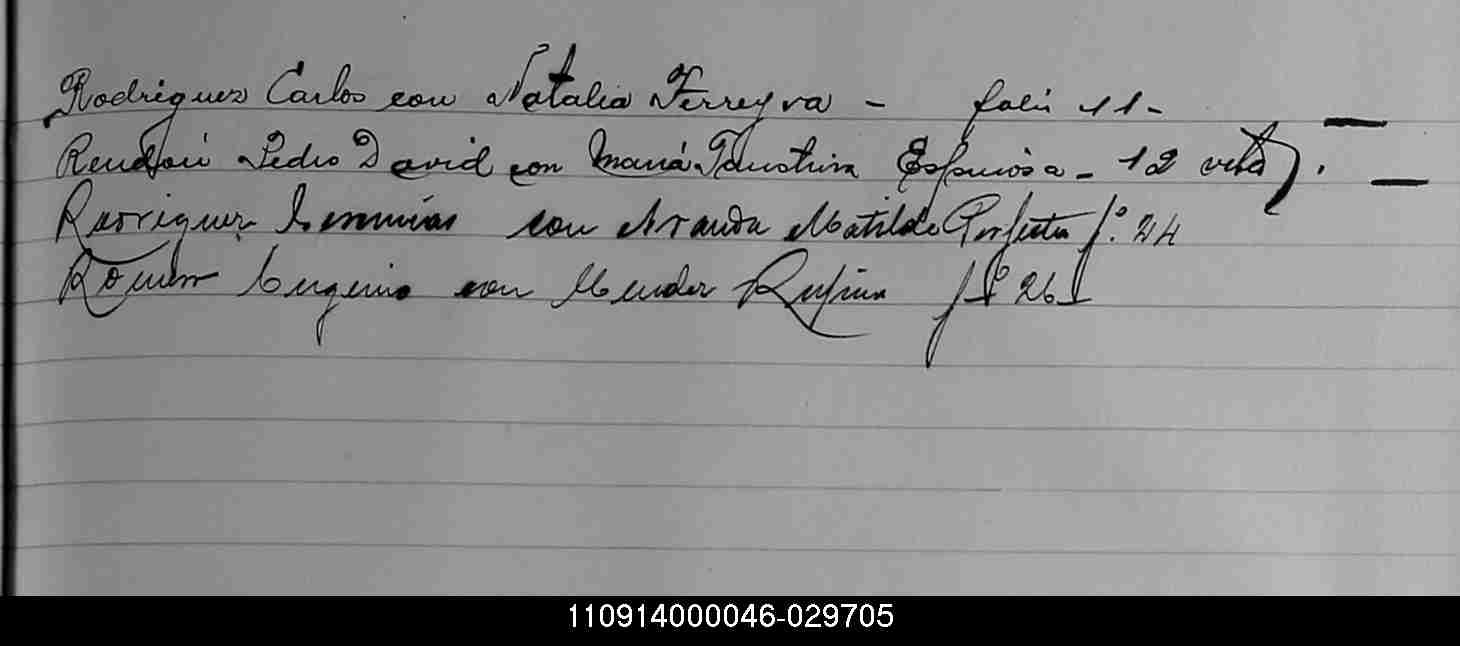 Rodriguez Carlos con Natalia Ferreyra - folio 11 -
Rendon Pedro David con María Faustina Espinosa - 12 vta.
Rodriguez Jeremías con Aranda Matilde Perfecta f.º 24
Roman Eugenio con Mender Rufina fº 26
110914000046-029705